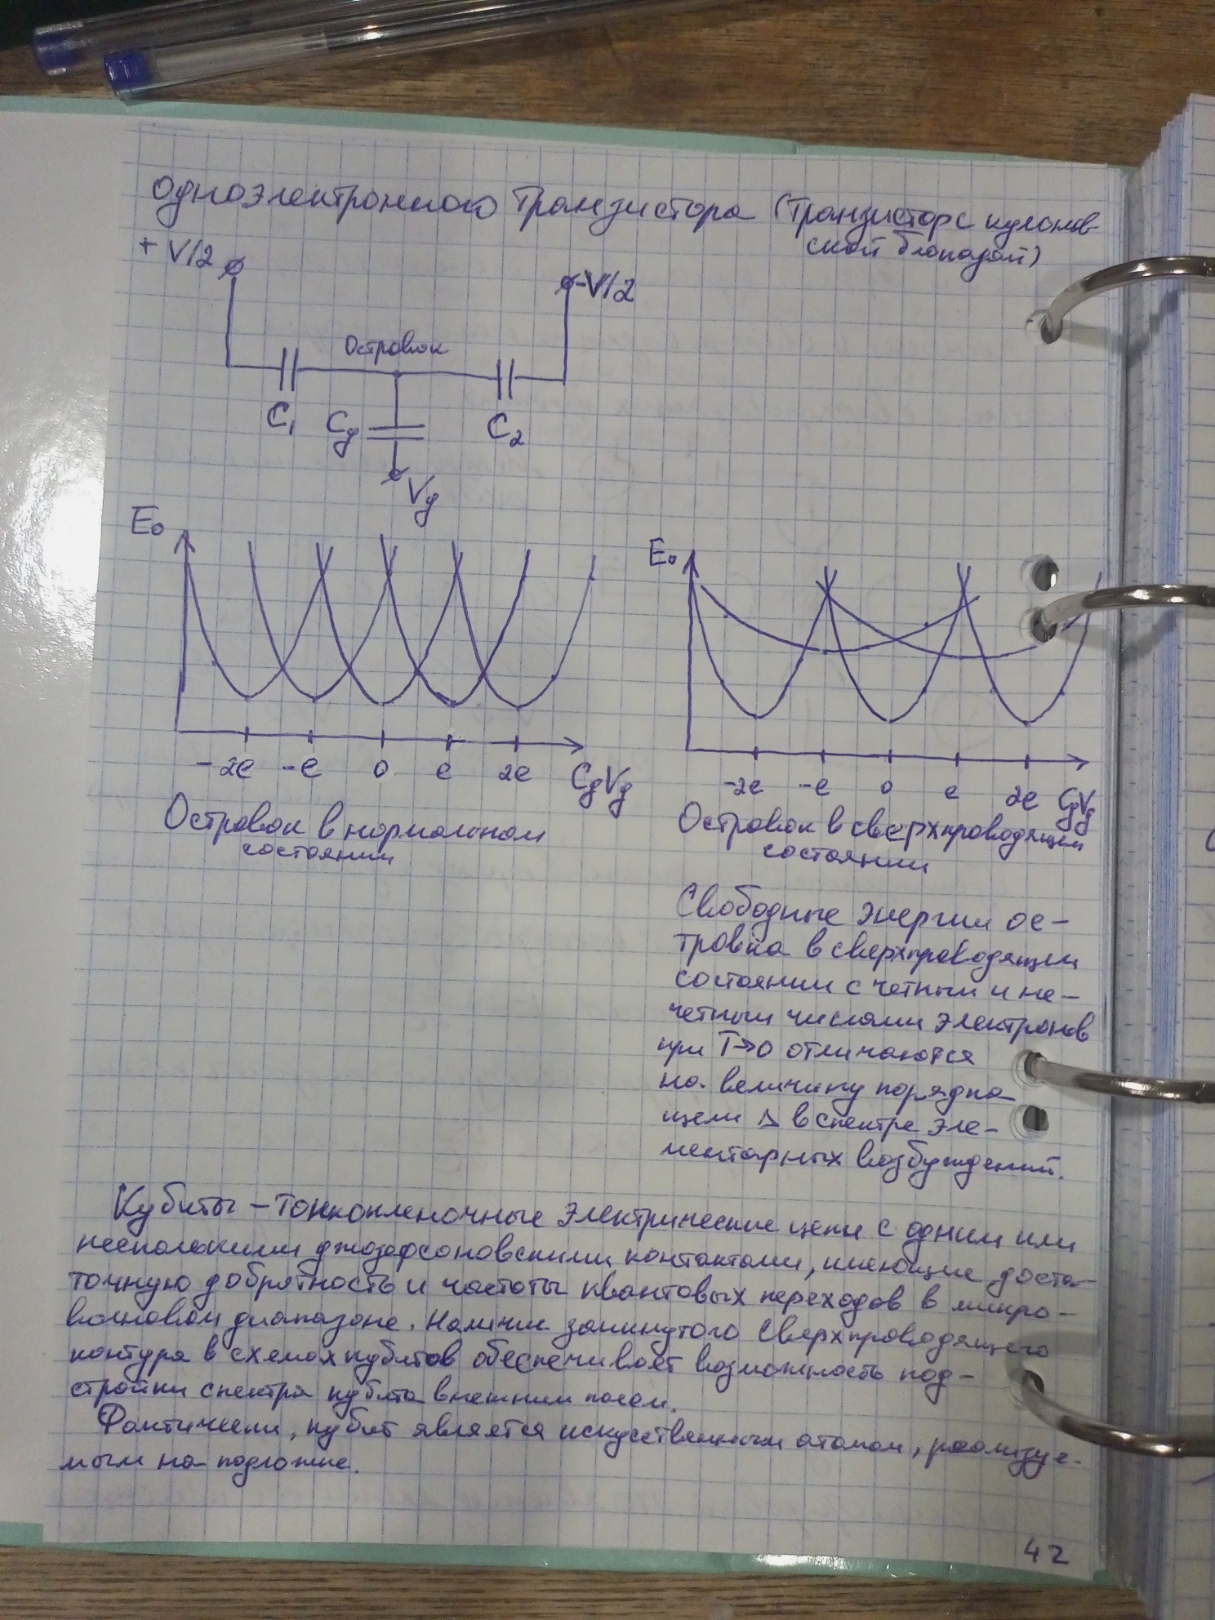 одноэлектронного транзистора (транзистора с кулонов-
ской блокадой)
+V/2
-V/2
Островок
C₁
Cg
C₂
Vg
E₀
-2e -e 0 e 2e CgVg
Островок в нормальном
состоянии
E₀
-2e -e 0 e 2e CgVg
Островок в сверхпроводящем
состоянии
Свободные энергии ос-
тровка в сверхпроводящем
состоянии с четным и не-
четным числами электронов
при T→0 отличаются
на величину порядка
щели Δ в спектре эле-
ментарных возбуждений.
Кубиты – тонкопленочные электрические цепи с одним или
несколькими джозефсоновскими контактами, имеющие доста-
точную добротность и частоты квантовых переходов в микро-
волновом диапазоне. Наличие замкнутого сверхпроводящего
контура в схемах кубитов обеспечивает возможность под-
стройки спектра кубита внешним полем.
Фактически, кубит является искусственным атомом, реализуе-
мым на подложке.
42